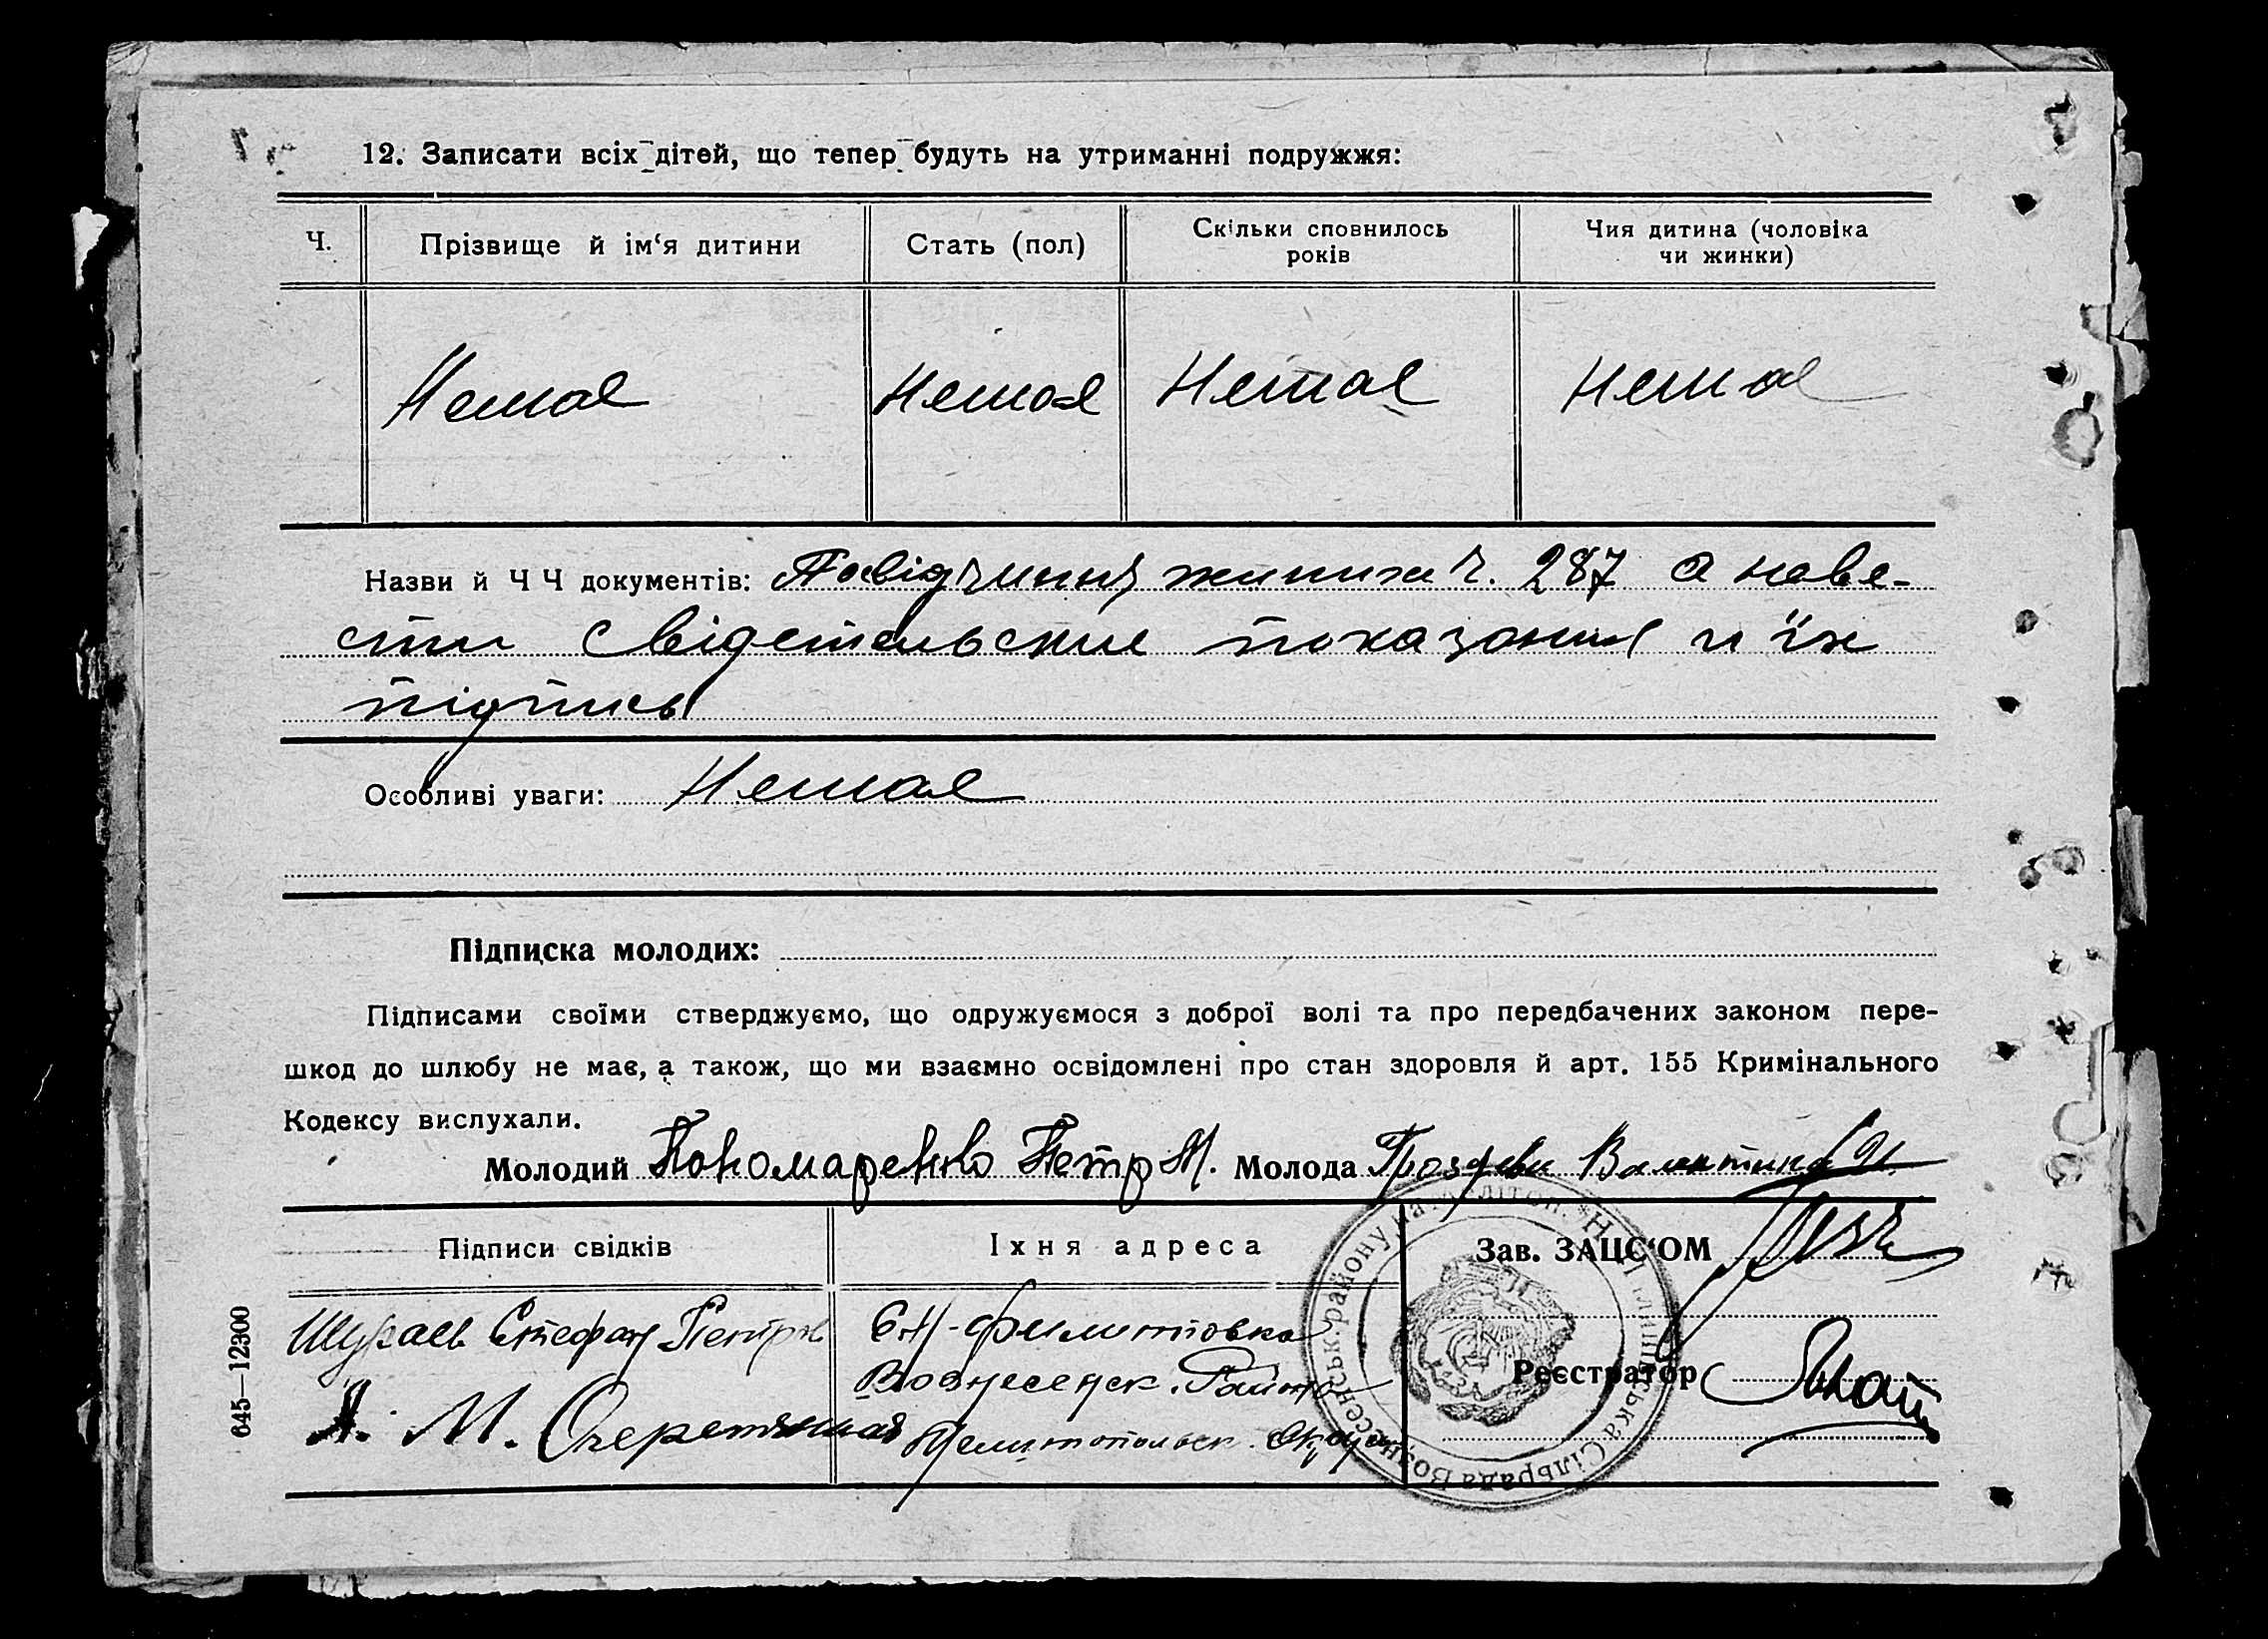 12. Записати всіх дітей, що тепер будуть на утриманні подружжя:
Ч. Прізвище й ім‘я дитини Стать (пол) Скільки сповнилось років Чия дитина (чоловіка чи жинки)
Немає Немає Немає Нема
Назви й Ч Ч документів: Посвідчиння жиниха Ч. 287 а неве-
сти свідетельские показания и їх
підпись
Особливі уваги: Немає
Підписка молодих:
Підписами своїми стверджуємо, що одружуємося з доброї волі та про передбачених законом пере-
шкод до шлюбу не має, а також, що ми взаємно освідомлені про стан здоровля й арт. 155 Кримінального
Кодексу вислухали.
Молодий Пономаренко Петр М. Молода Гроздева Валентина
Підписи свідків Їхня адреса Зав. ЗАЦС‘ОМ
Стефан Петров С Н-Филиповка
Вознесенск. Району Реєстратор
А. М. Очеретяная Мелитопольск. Округи
Сільрада Вознесенськ. району на Мелітоп.
645—12300